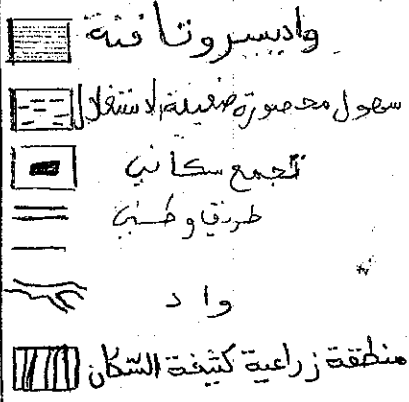 وادي سروتا فنة
سهول محصورة ضعيفة الاستغلال
تجمع سكاني
طريق وطني
واد
منطقة زراعية كثيفة السكان